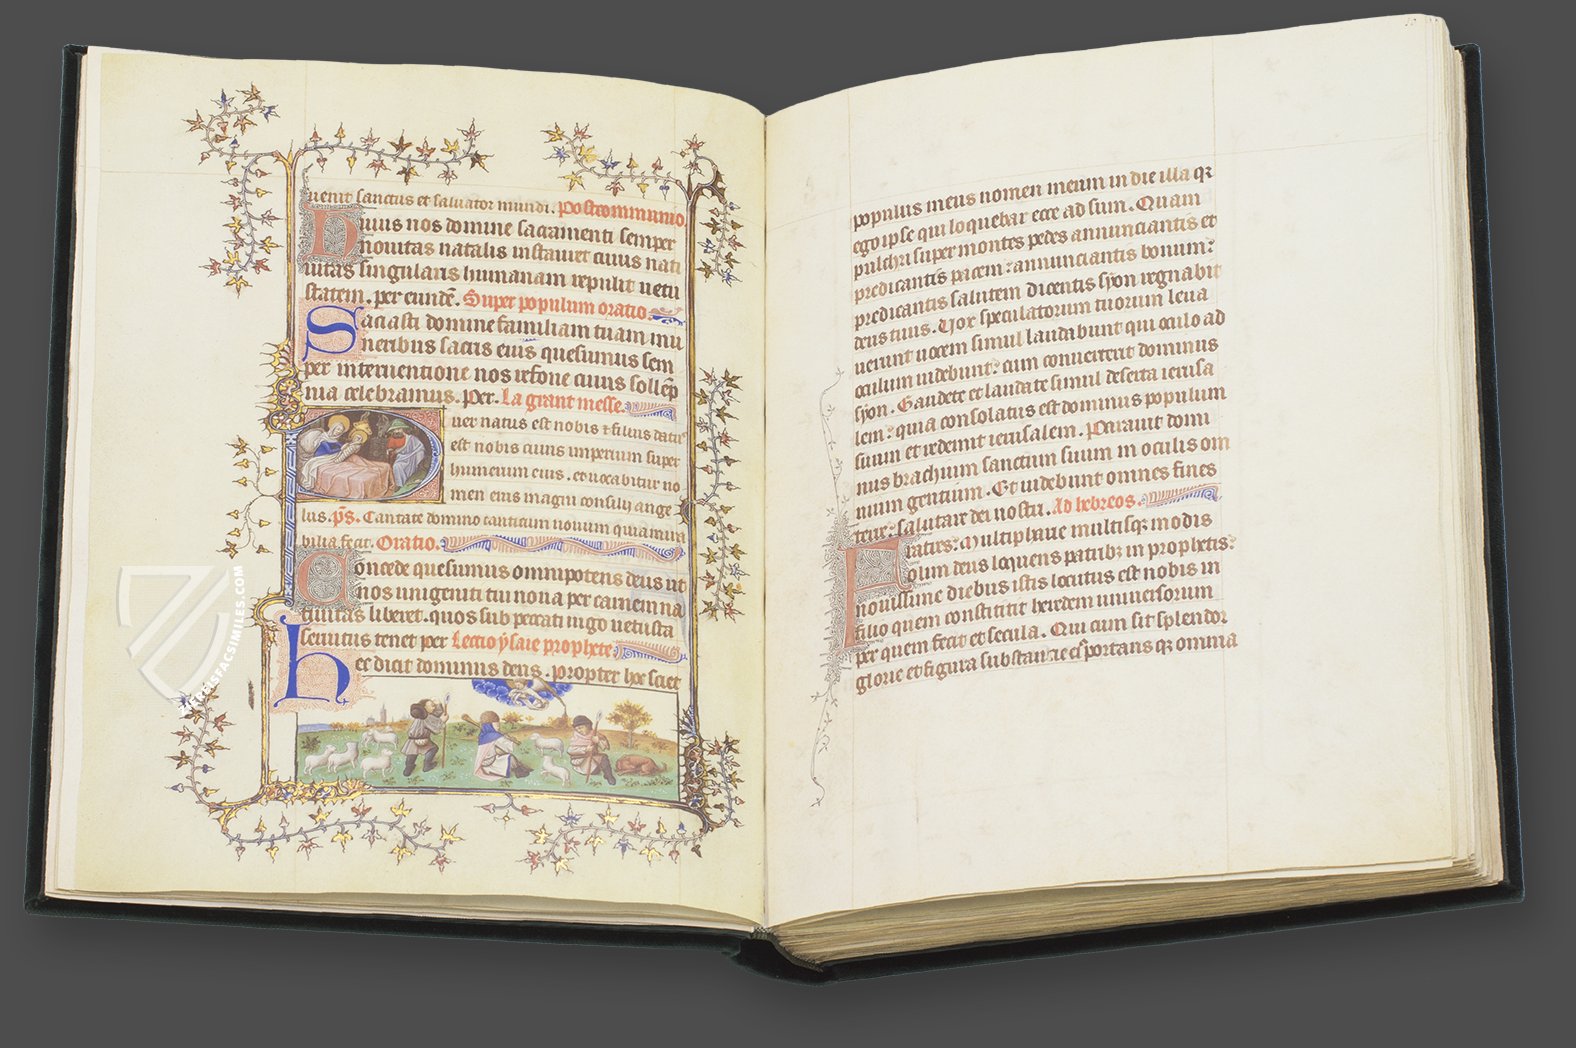 uenit sanctus et saluator mundi. Postcommunio.
Huius nos domine sacramenti semper
nouitas natalis instauret cuius nati
uitas singularis humanam repulit uetu
statem. per eundē. Super populum oratio
Saciasti domine familiam tuam mu
neribus sacris eius quesumus sem
per interuentione nos refoue cuius sollēp
nia celebramus. Per. La grant messe.
uer natus est nobis et filius datus
est nobis cuius imperium super
humerum eius. et uocabitur no
men eius magni consilij ange
lus. p̄s. Cantate domino canticum nouum quia mira
bilia fecit. Oratio.
Concede quesumus omnipotens deus ut
nos unigeniti tui noua per carnem na
tiuitas liberet. quos sub peccati iugo uetusta
seruitus tenet per Lectio ysaie prophete
Hec dicit dominus deus. propter hoc sciet
populus meus nomen meum in die illa qr
ego ipse qui loquebar ecce ad sum. Quam
pulchri super montes pedes annunciantis et
predicantis pacem: annunciantis bonum:
predicantis salutem dicentis syon regnabit
deus tuus. Uox speculatorum tuorum leua
uerunt uocem simul laudabunt qui oculo ad
oculum uidebunt: cum conuerterit dominus
syon. Gaudete et laudate simul deserta ierusa
lem: quia consolatus est dominus populum
suum et redemit ierusalem. Parauit domi
nus brachium sanctum suum in oculis om
nium gentium. Et uidebunt omnes fines
terre: salutare dei nostri. Ad hebreos.
Fratres: Multiphare multisqz modis
olim deus loquens patribz in prophetis:
nouissime diebus istis locutus est nobis in
filio quem constituit heredem uniuersorum
per quem fecit et secula. Qui cum sit splendor
glorie et figura substancie eiꝰ portans qz omnia
FACSIMILES.COM